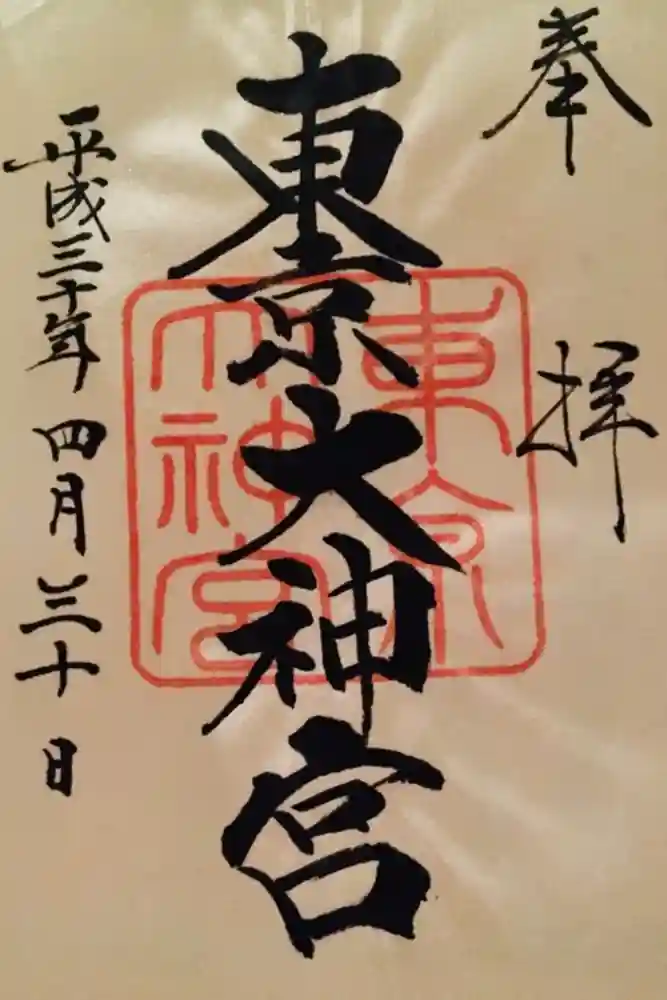 奉拝
東京大神宮
東京大神宮
平成三十年四月三十日